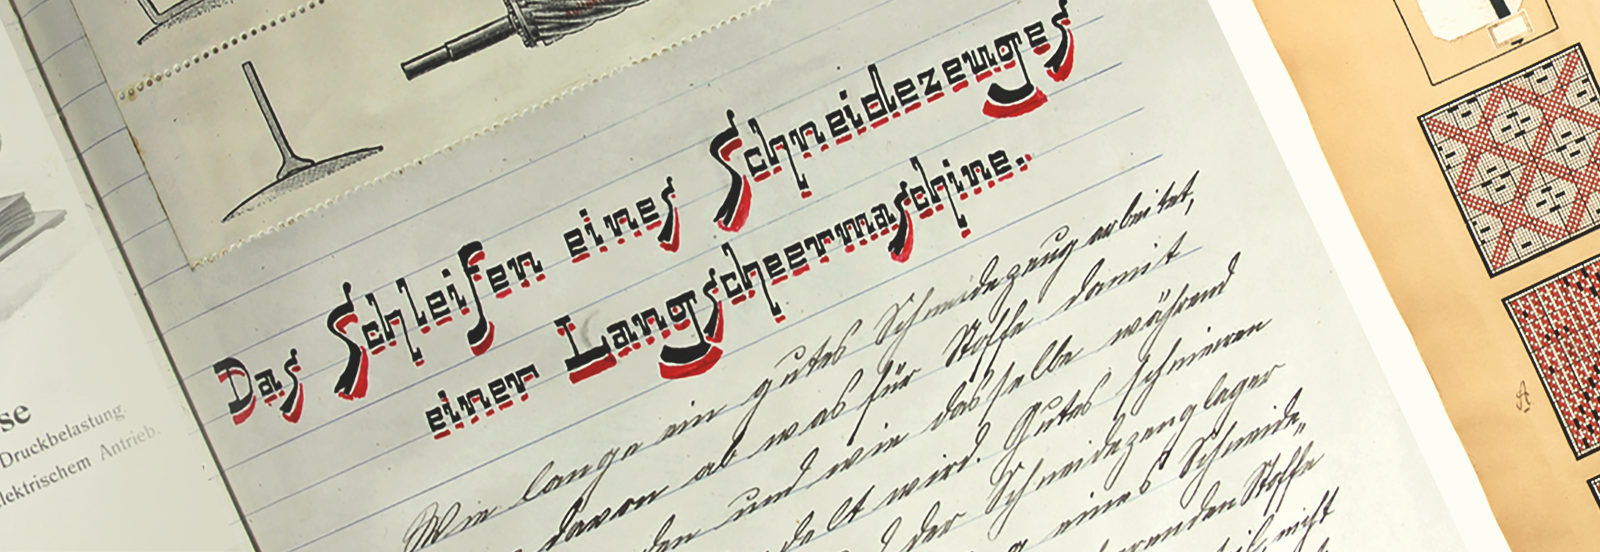 se
Druckbelastung.
elektrischem Antrieb.
Das Schleifen eines Schneidezeuges
einer Langscheermaschine.
Wie lange ein gutes Schneidezeug arbeitet,
davon ab was für Stoffe damit
den und wie dasselbe während
delt wird. Gutes schmieren
der Schneidezeuglager
eines Schneide„
Stoffe
nicht
A